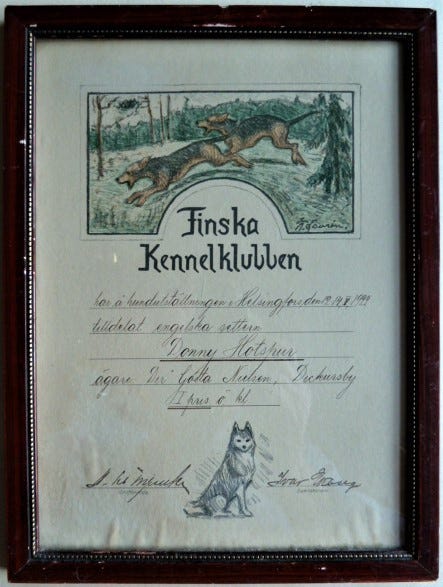 Finska
Kennelklubben
har å hundutställningen i Helsingfors den
tilldelat engelska settern
Donny Hotspur
ägare Dir Gösta Nielsen, Dickursby
pris ö kl
Ivar